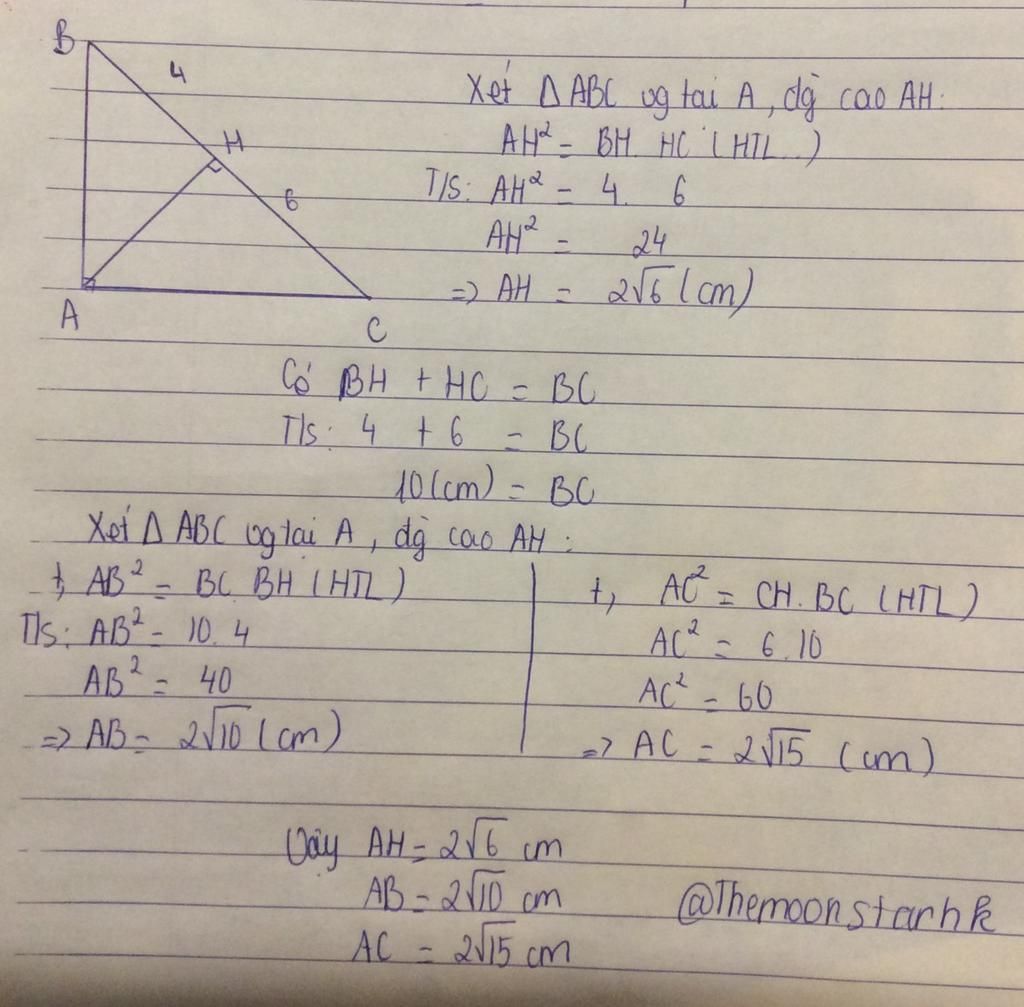 B
4
H
6
A
C
Xét Δ ABC vg tai A, đg̀ cao AH:
AH² = BH. HC (HTL)
T/S: AH² = 4. 6
AH² = 24
=> AH = 2√6 (cm)
Có BH + HC = BC
T/s: 4 + 6 = BC
10 (cm) = BC
Xét Δ ABC vg tai A, đg̀ cao AH:
+, AB² = BC. BH (HTL)
T/s: AB² = 10. 4
AB² = 40
=> AB = 2√10 (cm)
+, AC² = CH. BC (HTL)
AC² = 6.10
AC² = 60
=> AC = 2√15 (cm)
Vậy AH = 2√6 cm
AB = 2√10 cm
AC = 2√15 cm
@Themoonstarhk